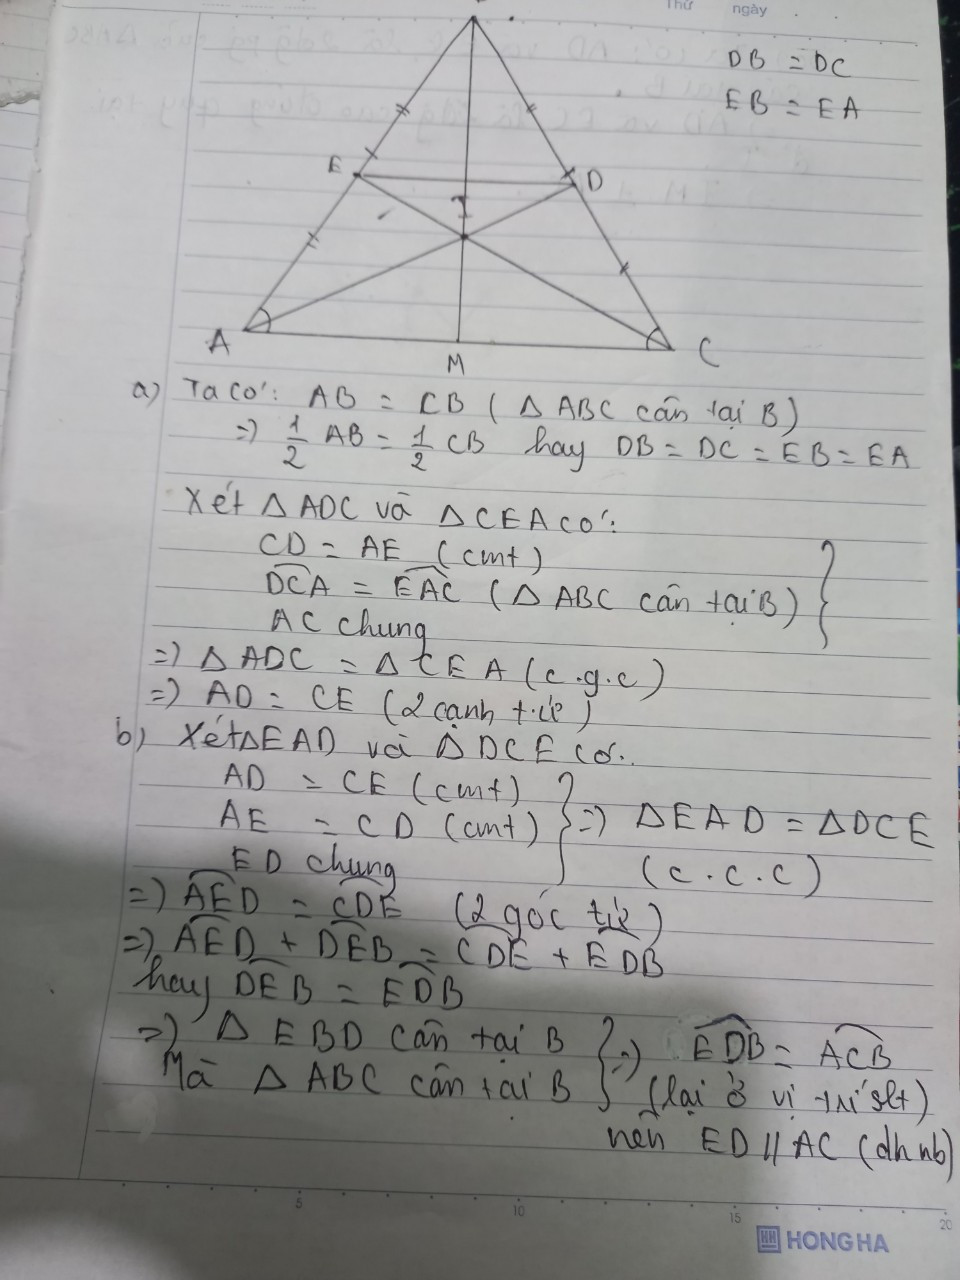 Thứ ngày
DB = DC
EB = EA
E
D
I
A
M
C
a) Ta có: AB = CB ( Δ ABC cân tại B)
=) 1/2 AB = 1/2 CB hay DB = DC = EB = EA
Xét Δ ADC và Δ CEA có:
CD = AE (cmt)
DCA = EAC ( Δ ABC cân tại B)
AC chung
=) Δ ADC = Δ CEA (c.g.c)
=) AD = CE (2 cạnh t.ứ)
b) Xét Δ EAD và Δ DCE có:
AD = CE (cmt)
AE = CD (cmt) =) Δ EAD = Δ DCE
ED chung (c.c.c)
=) AED = CDE (2 góc t.ứ)
=) AED + DEB = CDE + EDB
hay DEB = EDB
=) Δ EBD cân tại B =) EDB = ACB
Mà Δ ABC cân tại B (lại ở vị trí slt)
nên ED // AC (dhnb)
5 10 15 20
HH HONG HA